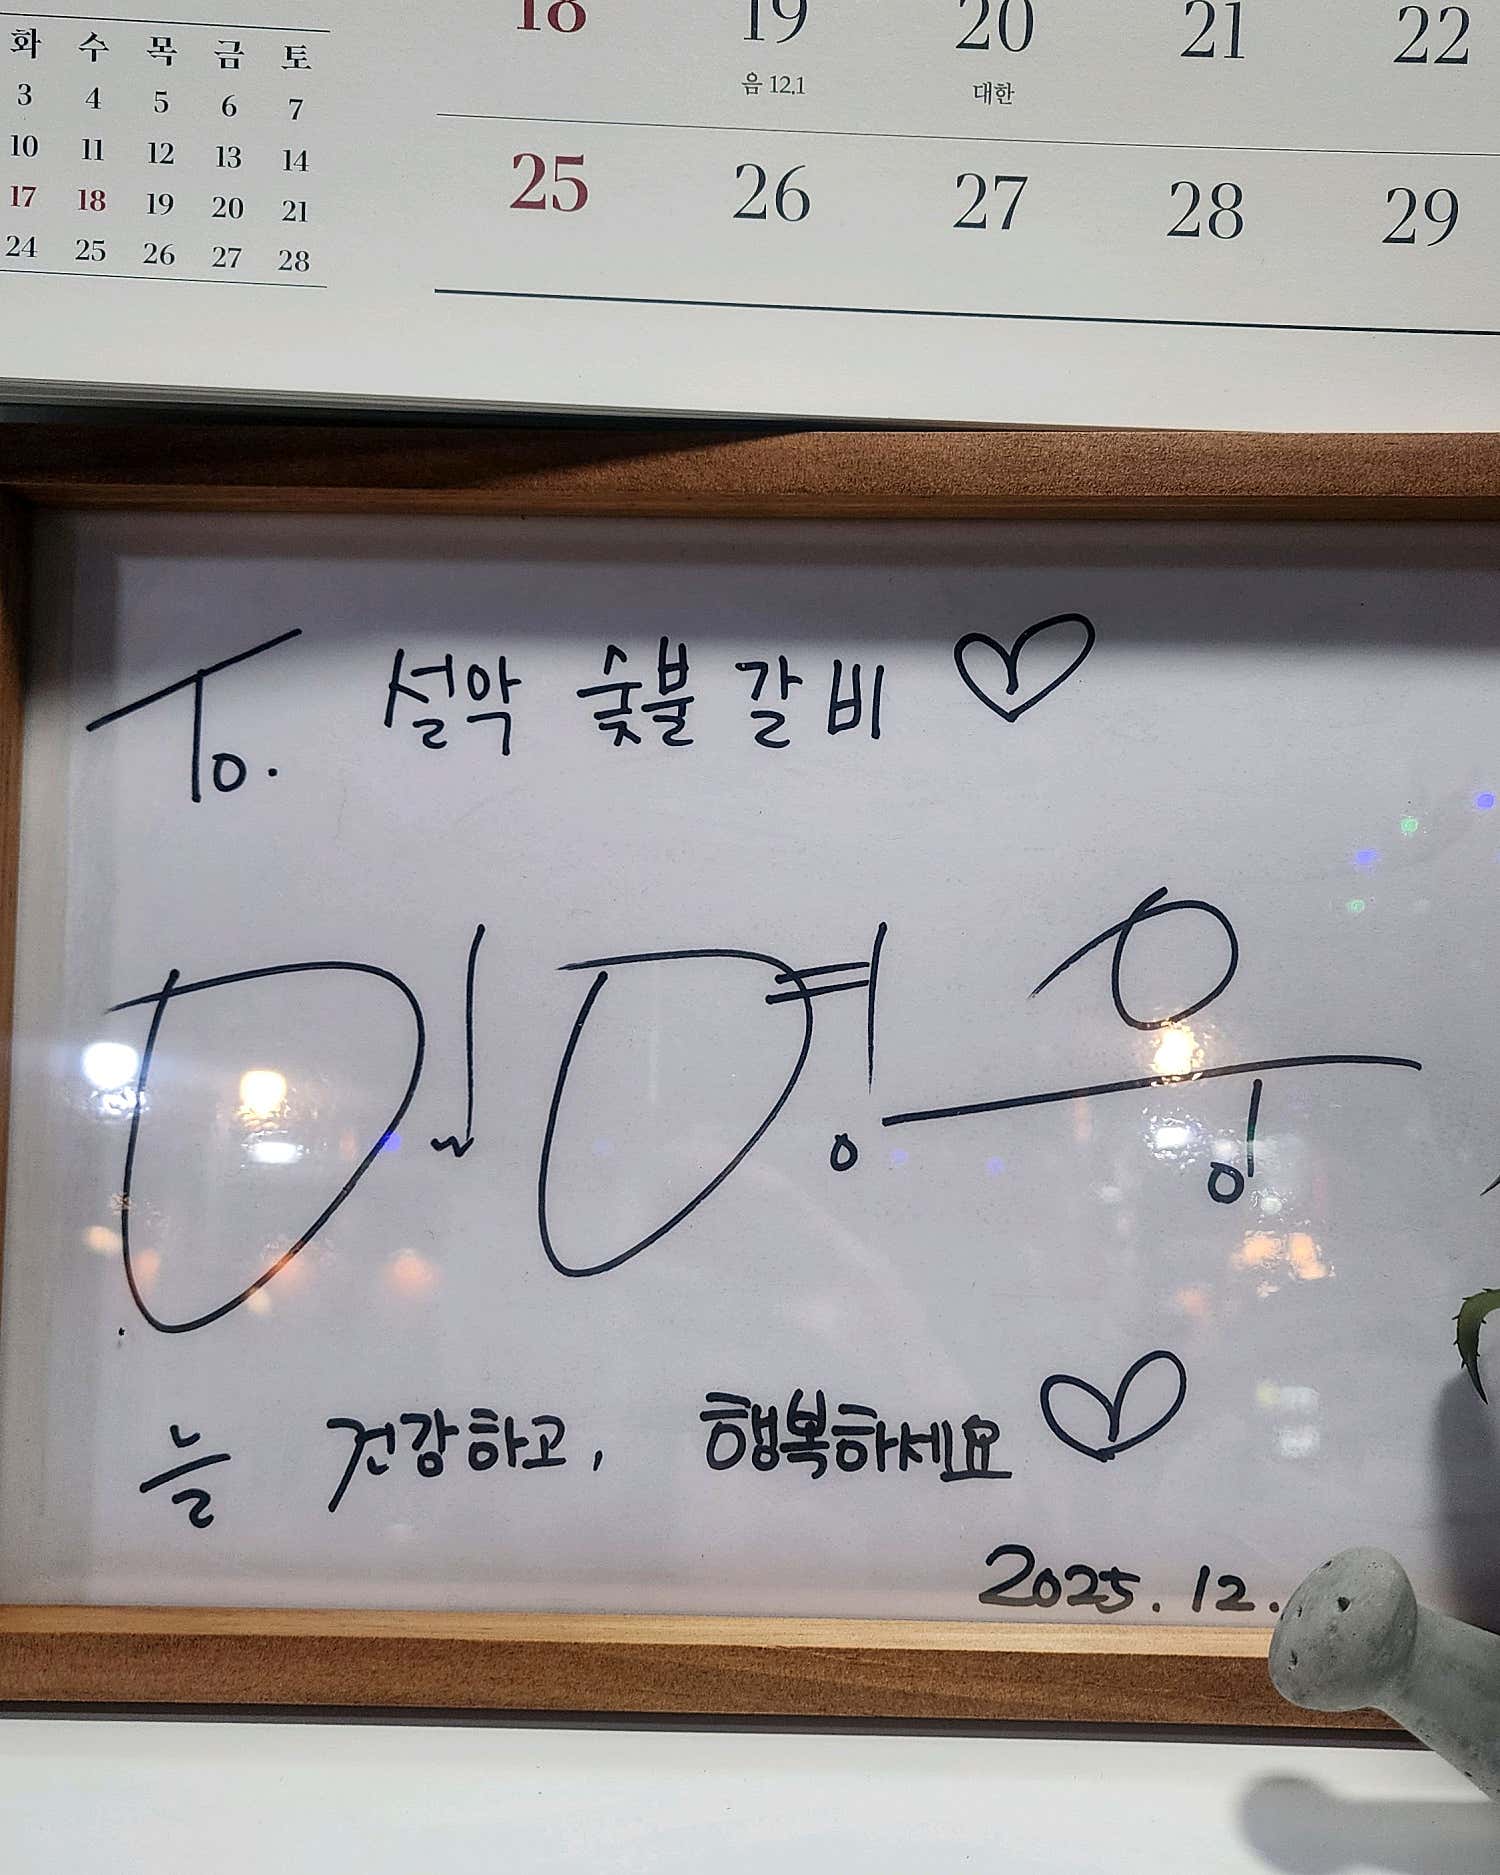 화 수 목 금 토
3 4 5 6 7
10 11 12 13 14
17 18 19 20 21
24 25 26 27 28
18 19 20 21 22
음 12.1 대한
25 26 27 28 29
To. 설악 숯불 갈비 ♡
늘 건강하고, 행복하세요 ♡
2025. 12.